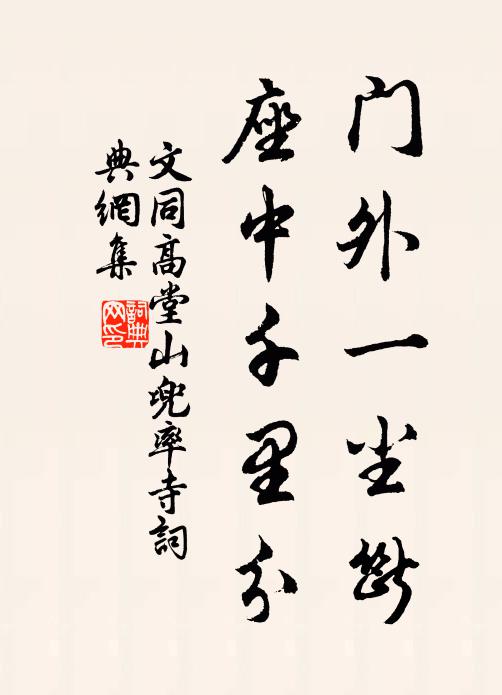 门外一尘断
座中千里分
文同高堂山兜率寺詞
典網集
詞典
网印